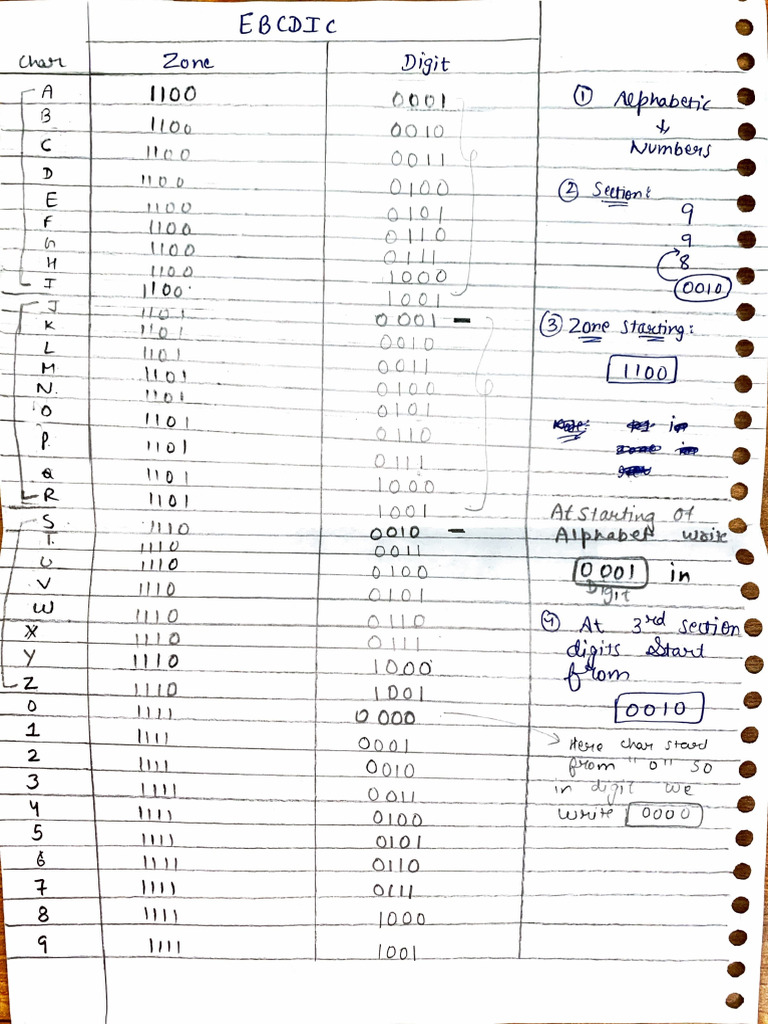 EBCDIC
Char Zone Digit
A 1100 0001
B 1100 0010
C 1100 0011
D 1100 0100
E 1100 0101
F 1100 0110
G 1100 0111
H 1100 1000
I 1100 1001
J 1101 0001 -
K 1101 0010
L 1101 0011
M 1101 0100
N 1101 0101
O 1101 0110
P 1101 0111
Q 1101 1000
R 1101 1001
S 1110 0010 -
T 1110 0011
U 1110 0100
V 1110 0101
W 1110 0110
X 1110 0111
Y 1110 1000
Z 1110 1001
0 1111 0000
1 1111 0001
2 1111 0010
3 1111 0011
4 1111 0100
5 1111 0101
6 1111 0110
7 1111 0111
8 1111 1000
9 1111 1001
① Alphabetic
↓
Numbers
② Section:
9
9
8
0010
③ Zone starting:
1100
At starting of
Alphabet write
0001 in
Digit
④ At 3rd section
digits start
from
0010
Here char start
from "0" so
in digit we
write 0000